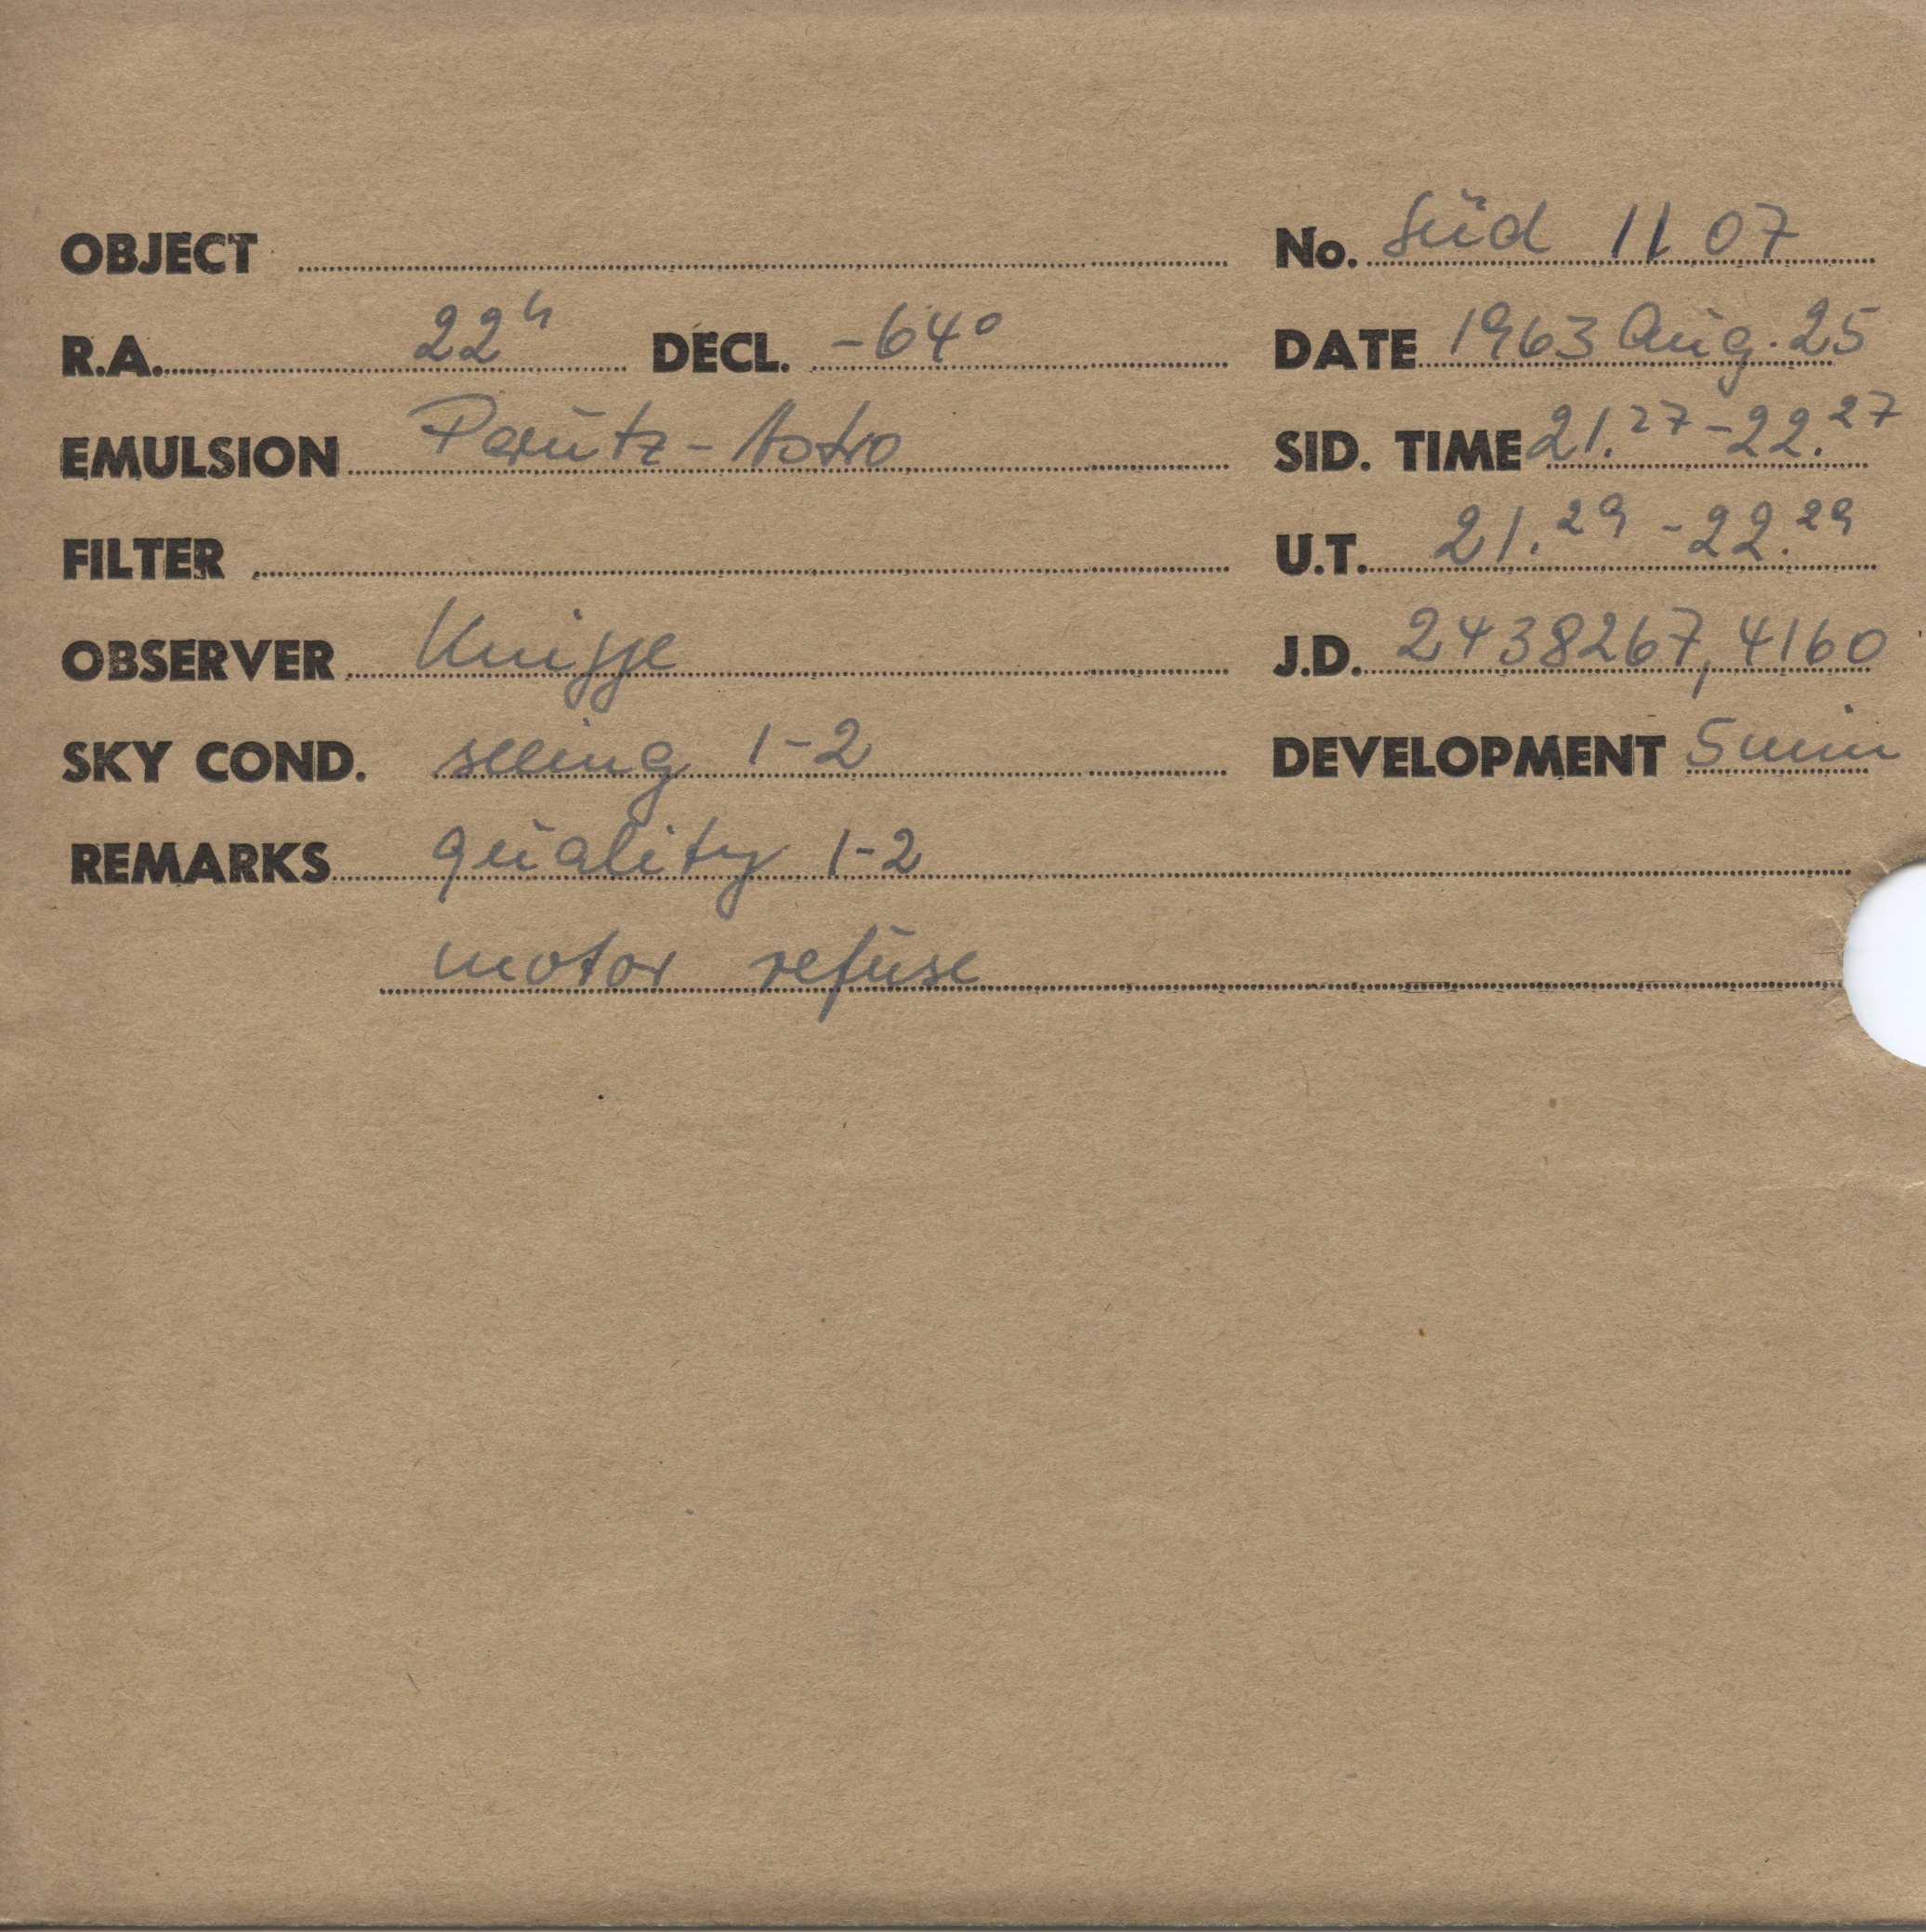 OBJECT No. Süd 1107
R.A. 22h DECL. -64° DATE 1963 Aug. 25
EMULSION Perutz-Astro SID. TIME 21.27-22.27
FILTER U.T. 21.29-22.29
OBSERVER Knigge J.D. 2438267,4160
SKY COND. seeing 1-2 DEVELOPMENT 5 min
REMARKS quality 1-2
motor refuse